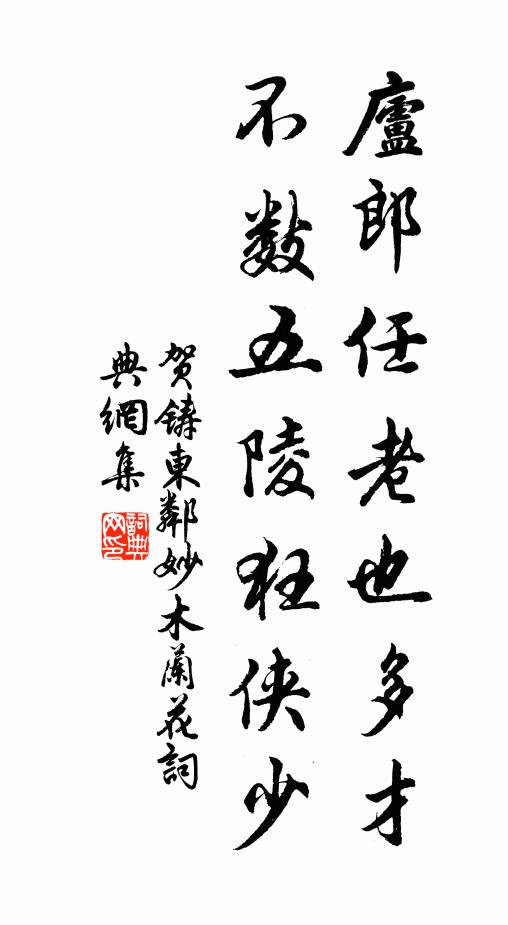 廬郎任老也多才
不数五陵狂侠少
贺鑄東鄰妙木蘭花詞
典網集
詞典
网印